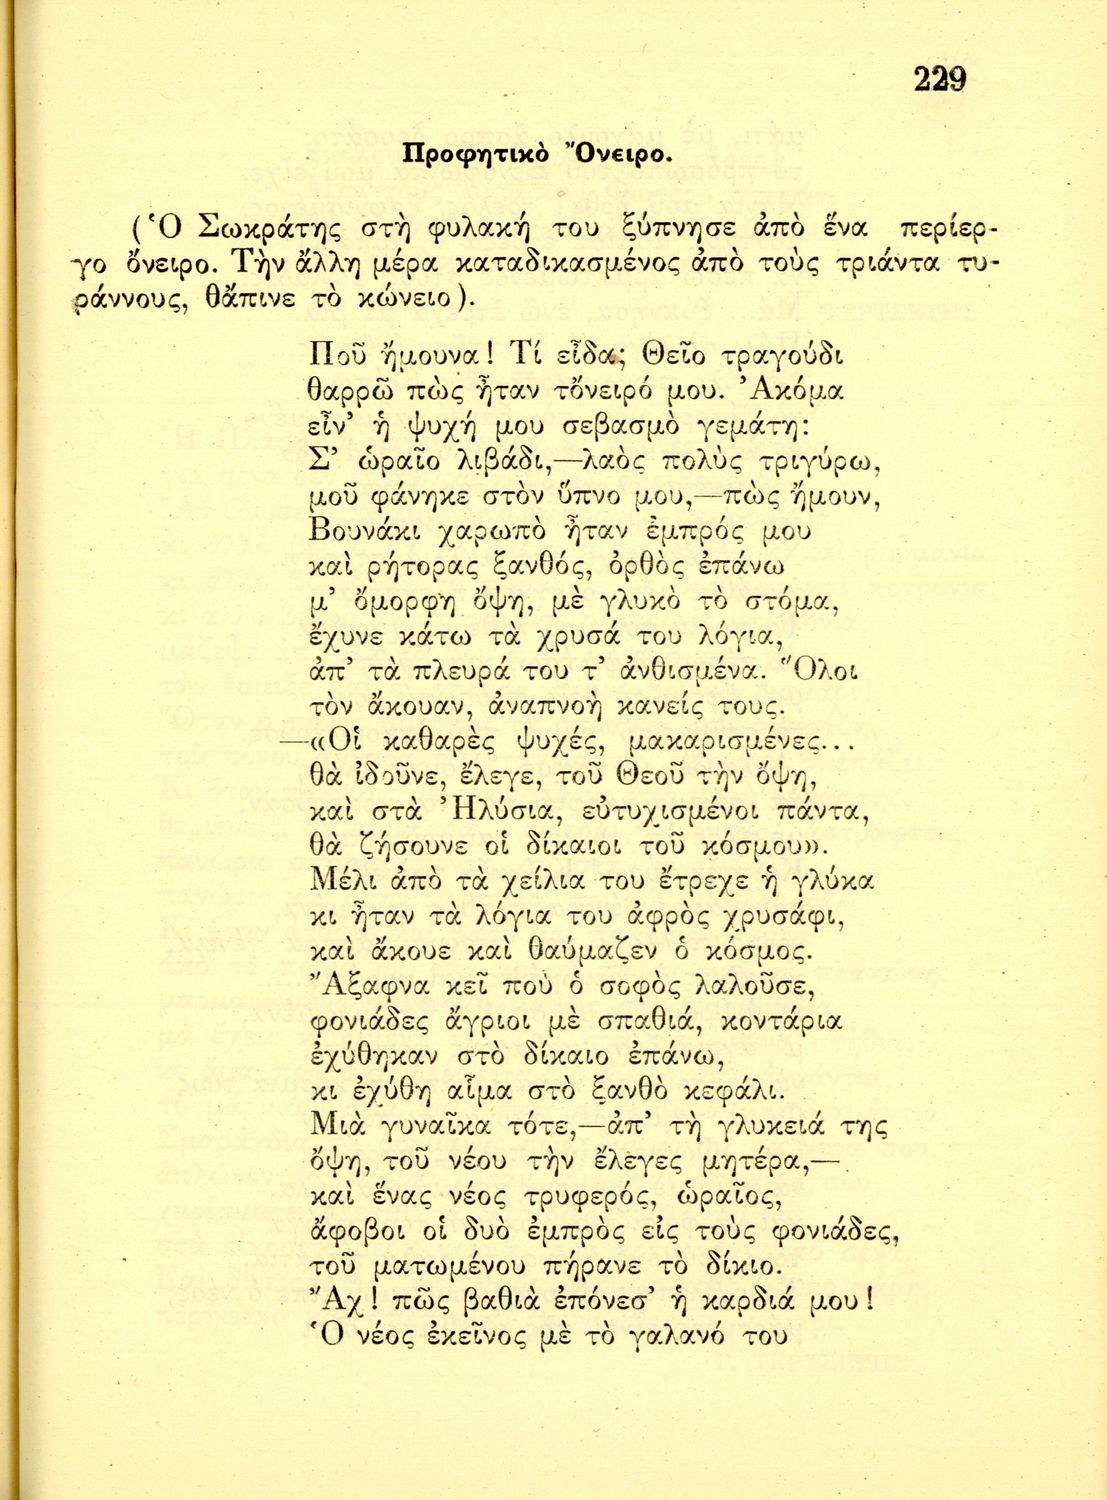 229
Προφητικὸ Ὄνειρο.
(Ὁ Σωκράτης στὴ φυλακή του ξύπνησε ἀπὸ ἕνα περίερ-
γο ὄνειρο. Τὴν ἄλλη μέρα καταδικασμένος ἀπὸ τοὺς τριάντα τυ-
ράννους, θἄπινε τὸ κώνειο).
Ποῦ ἤμουνα! Τί εἶδα; Θεῖο τραγούδι
θαρρῶ πὼς ἦταν τὄνειρό μου. Ἀκόμα
εἶν' ἡ ψυχή μου σεβασμὸ γεμάτη:
Σ' ὡραῖο λιβάδι,—λαὸς πολὺς τριγύρω,
μοῦ φάνηκε στὸν ὕπνο μου,—πὼς ἤμουν,
Βουνάκι χαρωπὸ ἦταν ἐμπρός μου
καὶ ρήτορας ξανθός, ὀρθὸς ἐπάνω
μ' ὄμορφη ὄψη, μὲ γλυκὸ τὸ στόμα,
ἔχυνε κάτω τὰ χρυσά του λόγια,
ἀπ' τὰ πλευρά του τ' ἀνθισμένα. Ὅλοι
τὸν ἄκουαν, ἀναπνοὴ κανείς τους.
—«Οἱ καθαρὲς ψυχές, μακαρισμένες...
θὰ ἰδοῦνε, ἔλεγε, τοῦ Θεοῦ τὴν ὄψη,
καὶ στὰ Ἠλύσια, εὐτυχισμένοι πάντα,
θὰ ζήσουνε οἱ δίκαιοι τοῦ κόσμου».
Μέλι ἀπὸ τὰ χείλια του ἔτρεχε ἡ γλύκα
κι ἦταν τὰ λόγια του ἀφρὸς χρυσάφι,
καὶ ἄκουε καὶ θαύμαζεν ὁ κόσμος.
Ἄξαφνα κεῖ ποὺ ὁ σοφὸς λαλοῦσε,
φονιάδες ἄγριοι μὲ σπαθιά, κοντάρια
ἐχύθηκαν στὸ δίκαιο ἐπάνω,
κι ἐχύθη αἷμα στὸ ξανθὸ κεφάλι.
Μιὰ γυναῖκα τότε,—ἀπ' τὴ γλυκειά της
ὄψη, τοῦ νέου τὴν ἔλεγες μητέρα,—
καὶ ἕνας νέος τρυφερός, ὡραῖος,
ἄφοβοι οἱ δυὸ ἐμπρὸς εἰς τοὺς φονιάδες,
τοῦ ματωμένου πήρανε τὸ δίκιο.
Ἄχ! πῶς βαθιὰ ἐπόνεσ' ἡ καρδιά μου!
Ὁ νέος ἐκεῖνος μὲ τὸ γαλανό του